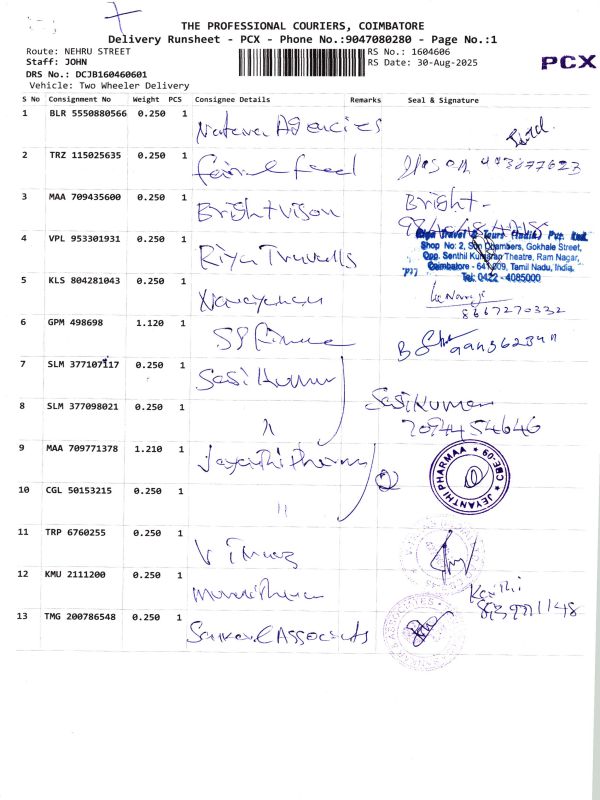 THE PROFESSIONAL COURIERS, COIMBATORE
Delivery Runsheet - PCX - Phone No.:9047080280 - Page No.:1
Route: NEHRU STREET
RS No.: 1604606
Staff: JOHN
RS Date: 30-Aug-2025
PCX
DRS No.: DCJB160460601
Vehicle: Two Wheeler Delivery
S No Consignment No Weight PCS Consignee Details Remarks Seal & Signature
1 BLR 5550880566 0.250 1 Agencies
2 TRZ 115025635 0.250 1
3 MAA 709435600 0.250 1 Bright vison Bright
4 VPL 953301931 0.250 1 Riya Travells
Riya Travel & Tours (India) Pvt. Ltd.
Shop No: 2, Son Chambers, Gokhale Street,
Opp. Senthil Kumaran Theatre, Ram Nagar,
Coimbatore - 641 009, Tamil Nadu, India.
Tel: 0422 - 4085000
5 KLS 804281043 0.250 1 Narayanan
8667270332
6 GPM 498698 1.120 1
7 SLM 377107117 0.250 1 Sasi Kumar
8 SLM 377098021 0.250 1 " Sasi Kumar
7094454646
9 MAA 709771378 1.210 1 Jayanthi Pharma 2
JEYANTHI PHARMAA CBE-09
10 CGL 50153215 0.250 1 "
11 TRP 6760255 0.250 1
12 KMU 2111200 0.250 1
13 TMG 200786548 0.250 1 Associats